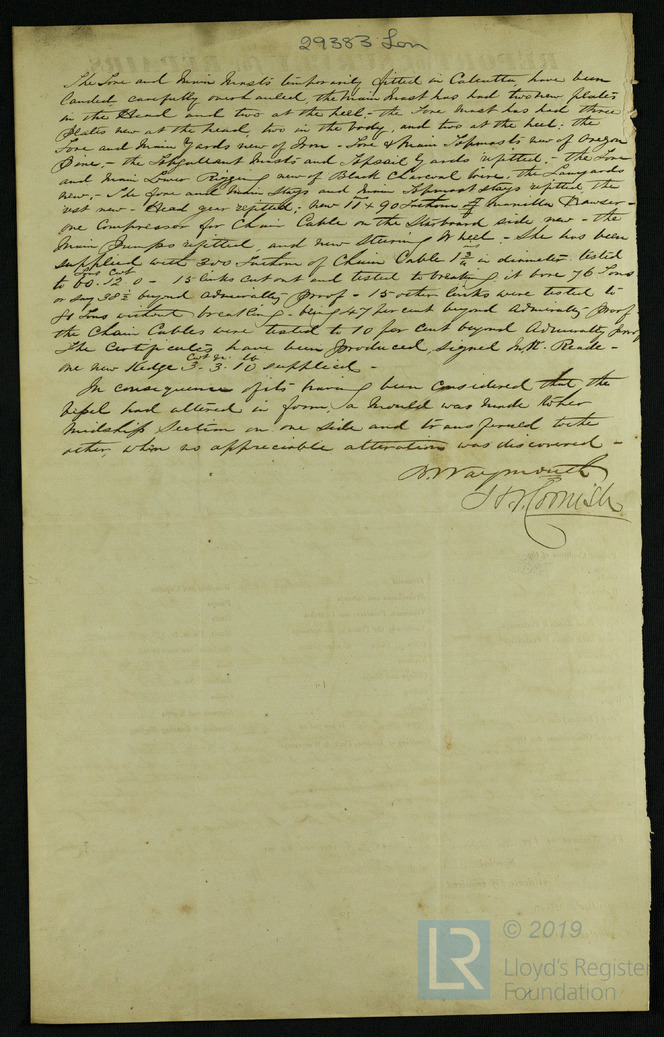 29383 Lon
The Fore and Main Masts temporarily fitted in Calcutta have been
landed carefully overhauled, the Main Mast has had two new plates
in the Head and two at the heel - the Fore Mast has had three
Plates new at the head, two in the body, and two at the heel: the
Fore and Main Yards new of Iron - Fore & Main Topmasts new of Oregon
Pine, - the Topgallant Masts and Topsail Yards refitted, - the Fore
and Main Lower Rigging new of Black Charcoal Wire, the Lanyards
new; - The Fore and Main Stays and Main Topmast stays refitted, the
rest new - Head gear refitted; new 11 x 90 Fathom of Manilla Hawser -
one Compressor for Chain Cable on the Starboard side new - the
Main Pumps refitted, and new Steering Wheel. - She has been
supplied with 300 Fathom of Chain Cable 1 3/4 in diameter tested
to 60. 12. 0 - 15 links cut out and tested to breaking, it bore 76 Tons
or say 38 1/2 beyond Admiralty Proof - 15 other links were tested to
81 Tons without breaking - being 47 per cent beyond Admiralty Proof -
the Chain Cables were tested to 10 per cent beyond Admiralty Proof
The Certificates have been produced, signed Reade -
one new Kedge Cwt qr lb 3. 3. 10 supplied -
In consequence of its having been considered that the
Vessel had altered in form, a Mould was made to her
Midship Section on one side and transferred to the
other, when no appreciable alteration was discovered -
Waymouth
Cornish
LR
© 2019
Lloyd's Register
Foundation